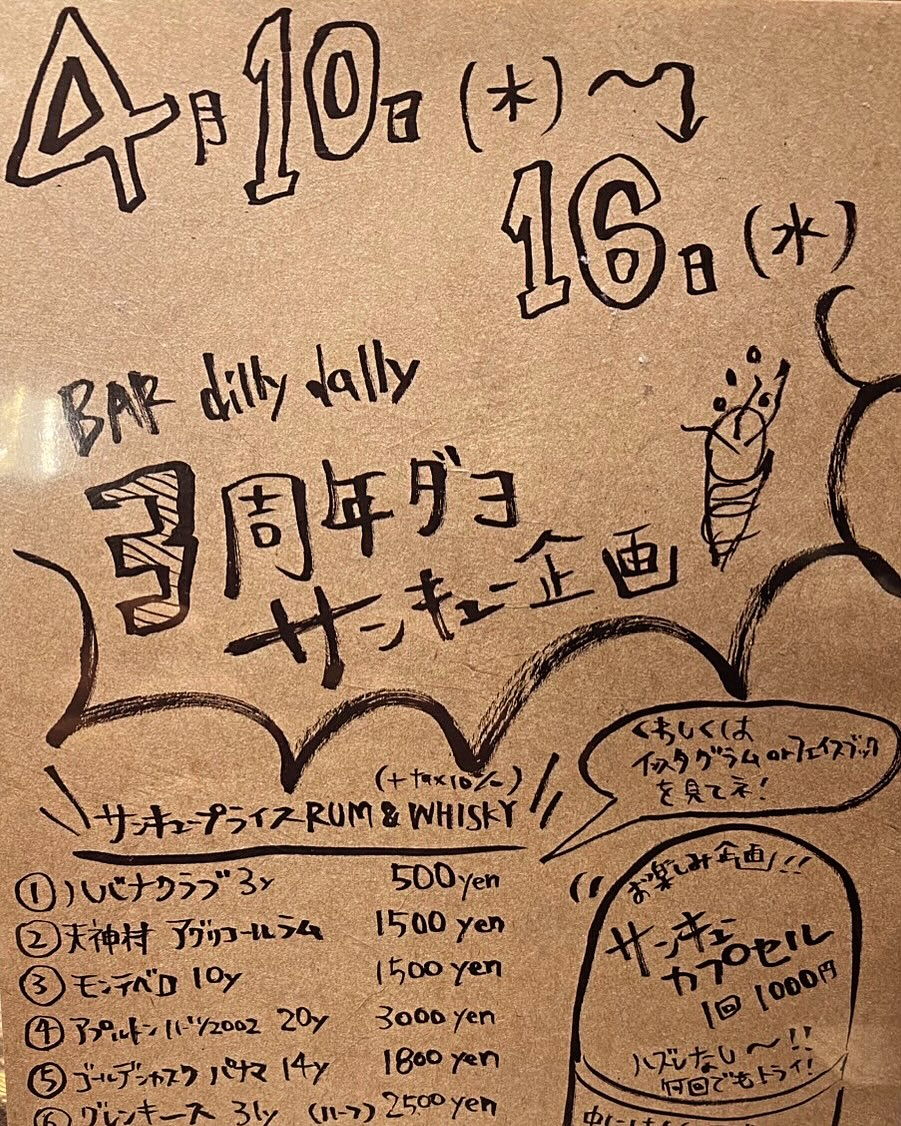 4月10日(木)〜
16日(水)
BAR dilly dally
3周年ダヨ
サンキュー企画
(+tax10%)
サンキュープライスRUM & WHISKY
① ハバナクラブ 3y 500yen
② 天神村 アグリコールラム 1500 yen
③ モンテベロ 10y 1500 yen
④ アプルトン 2002 20y 3000 yen
⑤ ゴールデンカスク パナマ 14y 1800 yen
⑥ グレンキース 31y (ハーフ) 2500 yen
くわしくは
インスタグラムorフェイスブック
を見てネ!
お楽しみ企画!!
サンキュー
カプセル
1回 1000円
ハズレなし〜!!
何回でもトライ!